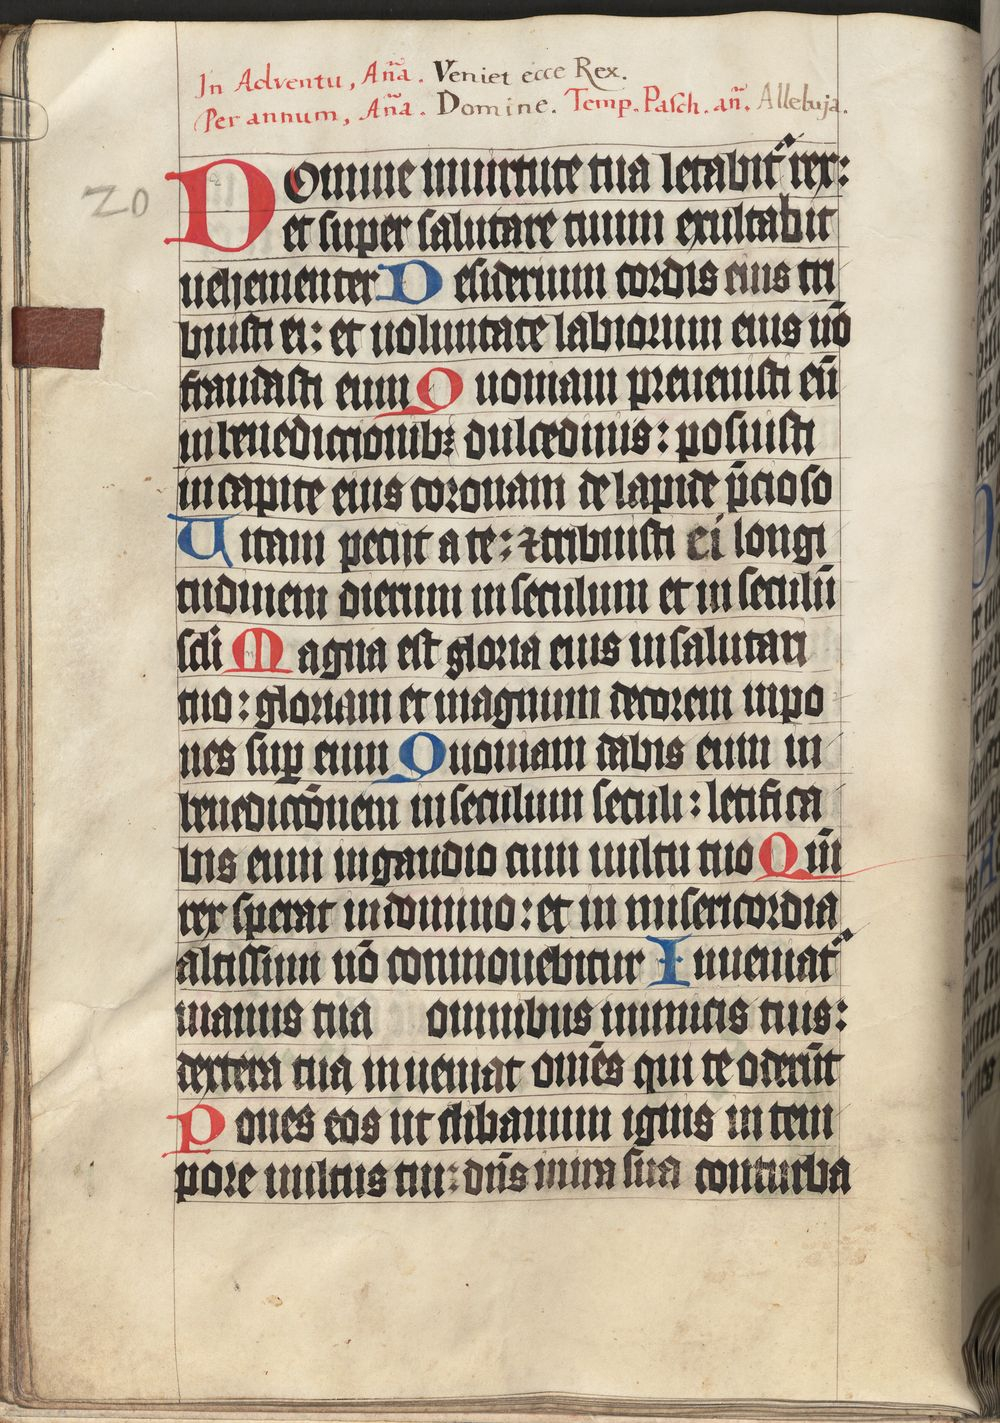 In Adventu, Aña. Veniet ecce Rex.
Per annum, Aña. Domine. Temp. Pasch. añ. Alleluja.
20
Domine in uirtute tua letabit᷑ rex:
et super salutare tuum exultabit
uehementer Desiderium cordis eius tri
buisti ei: et uoluntate labiorum eius nō
fraudasti eum Quoniam preuenisti eū
in benedictionibꝫ dulcedinis: posuisti
in capite eius coronam de lapide p̄cioso
Uitam petiit a te: ⁊ tribuisti ei longi
tudinem dierum in seculum et in seculū
scl̄i Magna est gloria eius in salutari
tuo: gloriam et magnum decorem inpo
nes suꝑ eum Quoniam dabis eum in
benedictōnem in seculum seculi: letifica
bis eum in gaudio cum uultu tuo Qm̄
rex sperat in domino: et in misericordia
altissimi nō conmouebitur Inueniat᷑
manus tua omnibus inimicis tuis:
dextera tua inueniat om̄es qui te oderūt
Pones eos ut clibanum ignis in tem
pore uultus tui: dn̄s in ira sua conturba